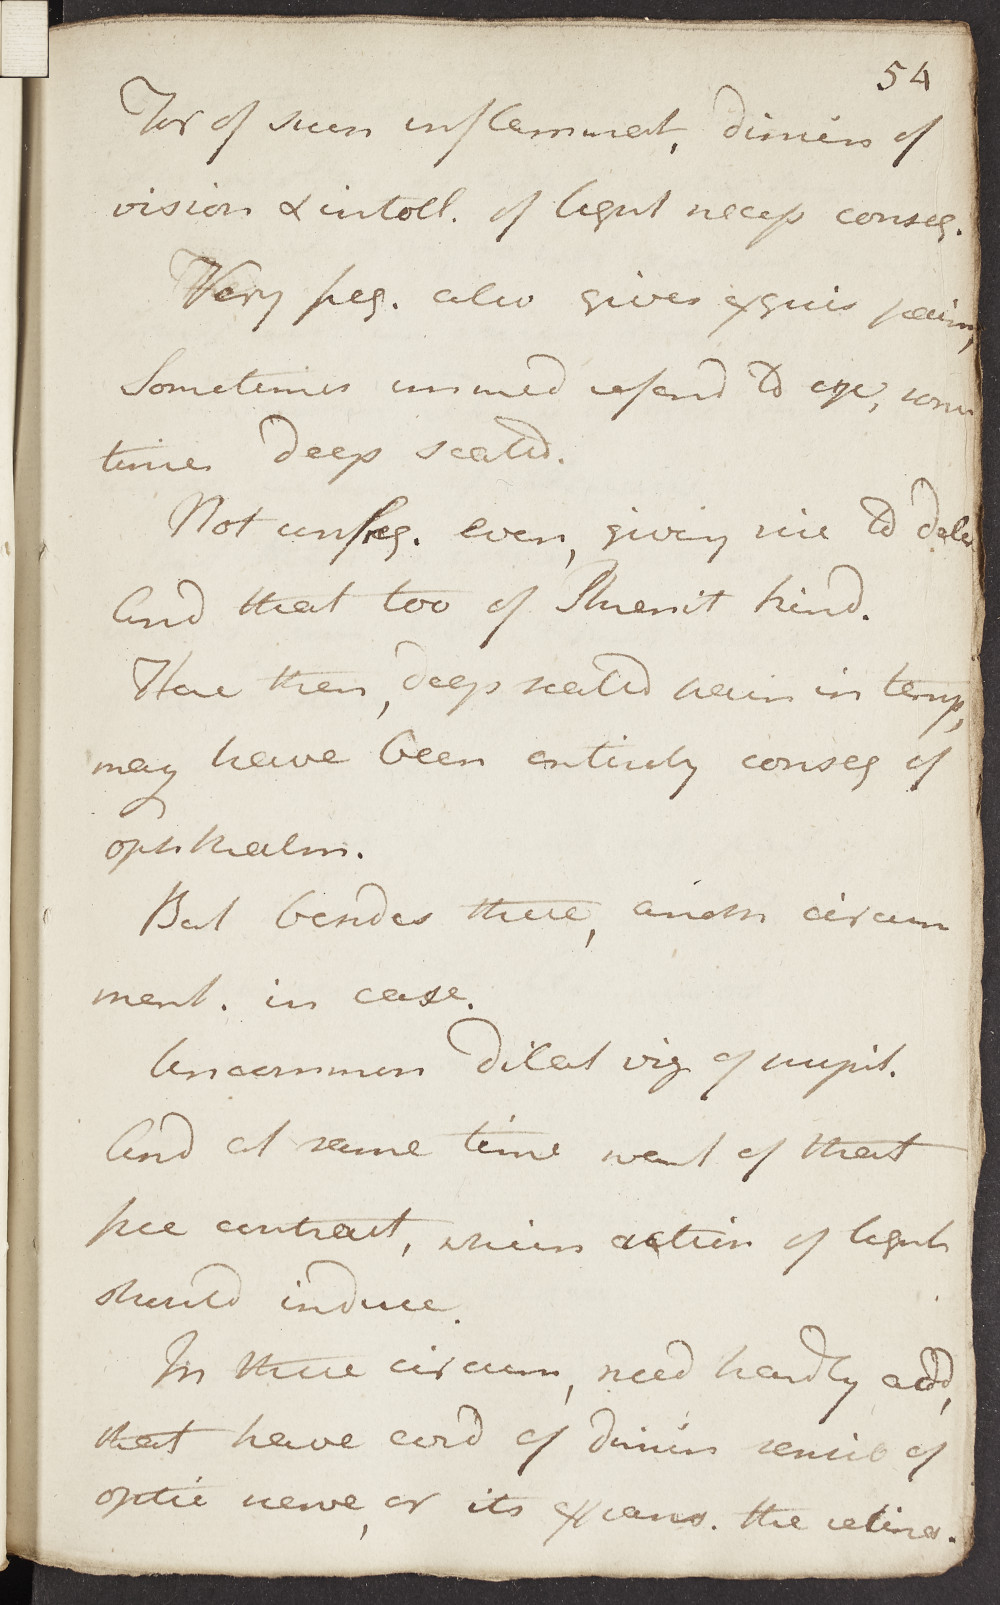 54
For of such inflammat, dimin of
vision & intoll. of light necess conseq.
Very freq. also gives exquis pain,
Sometimes immed refend to eye, some
times deep seated.
Not unfreq. even, giving rise to
And that too of kind.
Here then, deep seated pain in temp,
may have been entirely conseq of
ophthalm.
But besides these, anoth circum
ment. in case.
Uncommon dilat of pupil.
And at same time want of that
free contract, which action of light
should induce.
In these circum, need hardly add,
that have evid of dimin sensib of
optic nerve, or its expans. the retina.